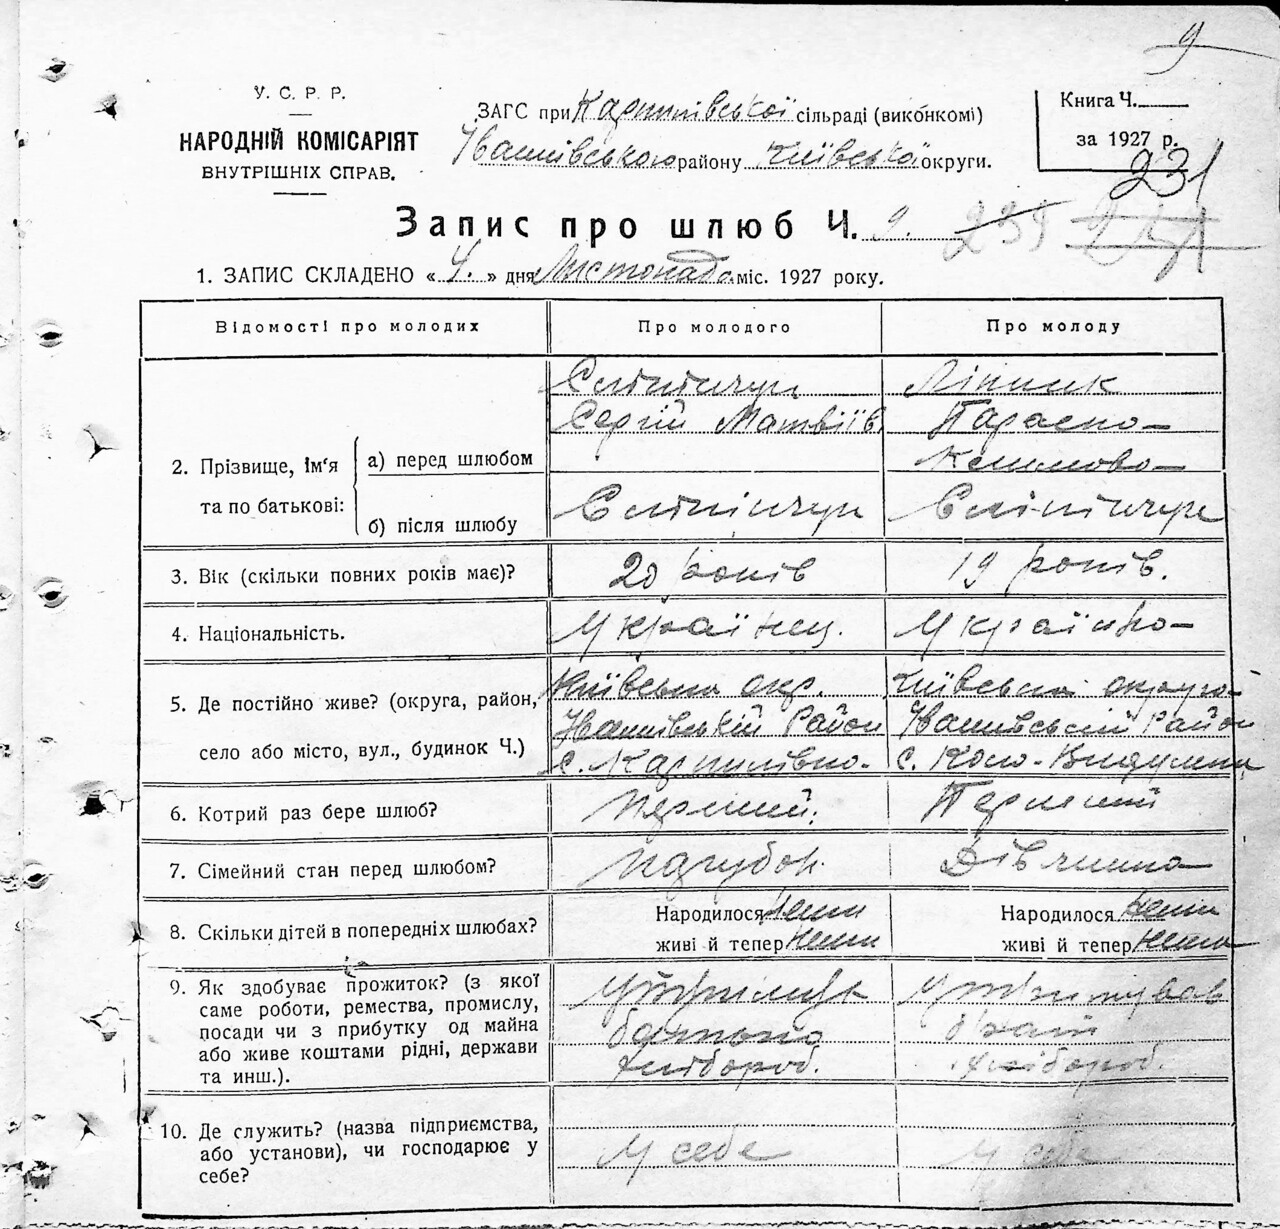 9
У. С. Р. Р.
НАРОДНІЙ КОМІСАРІЯТ
ВНУТРІШНІХ СПРАВ.
ЗАГС при Карпилівської сільраді (виконкомі)
Іванківського району Київської округи.
Книга Ч.
за 1927 р.
231
Запис про шлюб Ч. 9. 239
1. ЗАПИС СКЛАДЕНО « 4. » дня Листопада міс. 1927 року.
Відомості про молодих Про молодого Про молоду
2. Прізвище, ім'я та по батькові:
а) перед шлюбом
Сліпчук Ліпник
Сергій Матвіїв. Параска
Климова
б) після шлюбу
Сліпчук Сліпчук
3. Вік (скільки повних років має)? 20 років 19 років.
4. Національність. Українец. Українка
5. Де постійно живе? (округа, район, село або місто, вул., будинок Ч.)
Київська окр. Київська округа
Іванківський Район Іванківській Район
с. Карпилівка. с.
6. Котрий раз бере шлюб? Перший. Перший
7. Сімейний стан перед шлюбом? Парубок. Дівчина
8. Скільки дітей в попередніх шлюбах?
Народилося Нема Народилося Нема
живі й тепер Нема живі й тепер Нема
9. Як здобуває прожиток? (з якої
саме роботи, ремества, промислу,
посади чи з прибутку од майна
або живе коштами рідні, держави
та инш.).
батька
хлібороб. хлібороб.
10. Де служить? (назва підприємства,
або установи), чи господарює у
себе?
У себе У себе